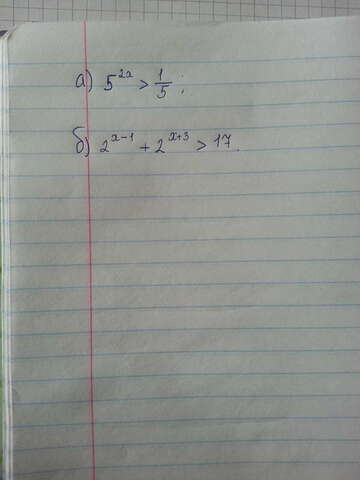 а) 5^{2x} > \frac{1}{5};
б) 2^{x-1} + 2^{x+3} > 17.